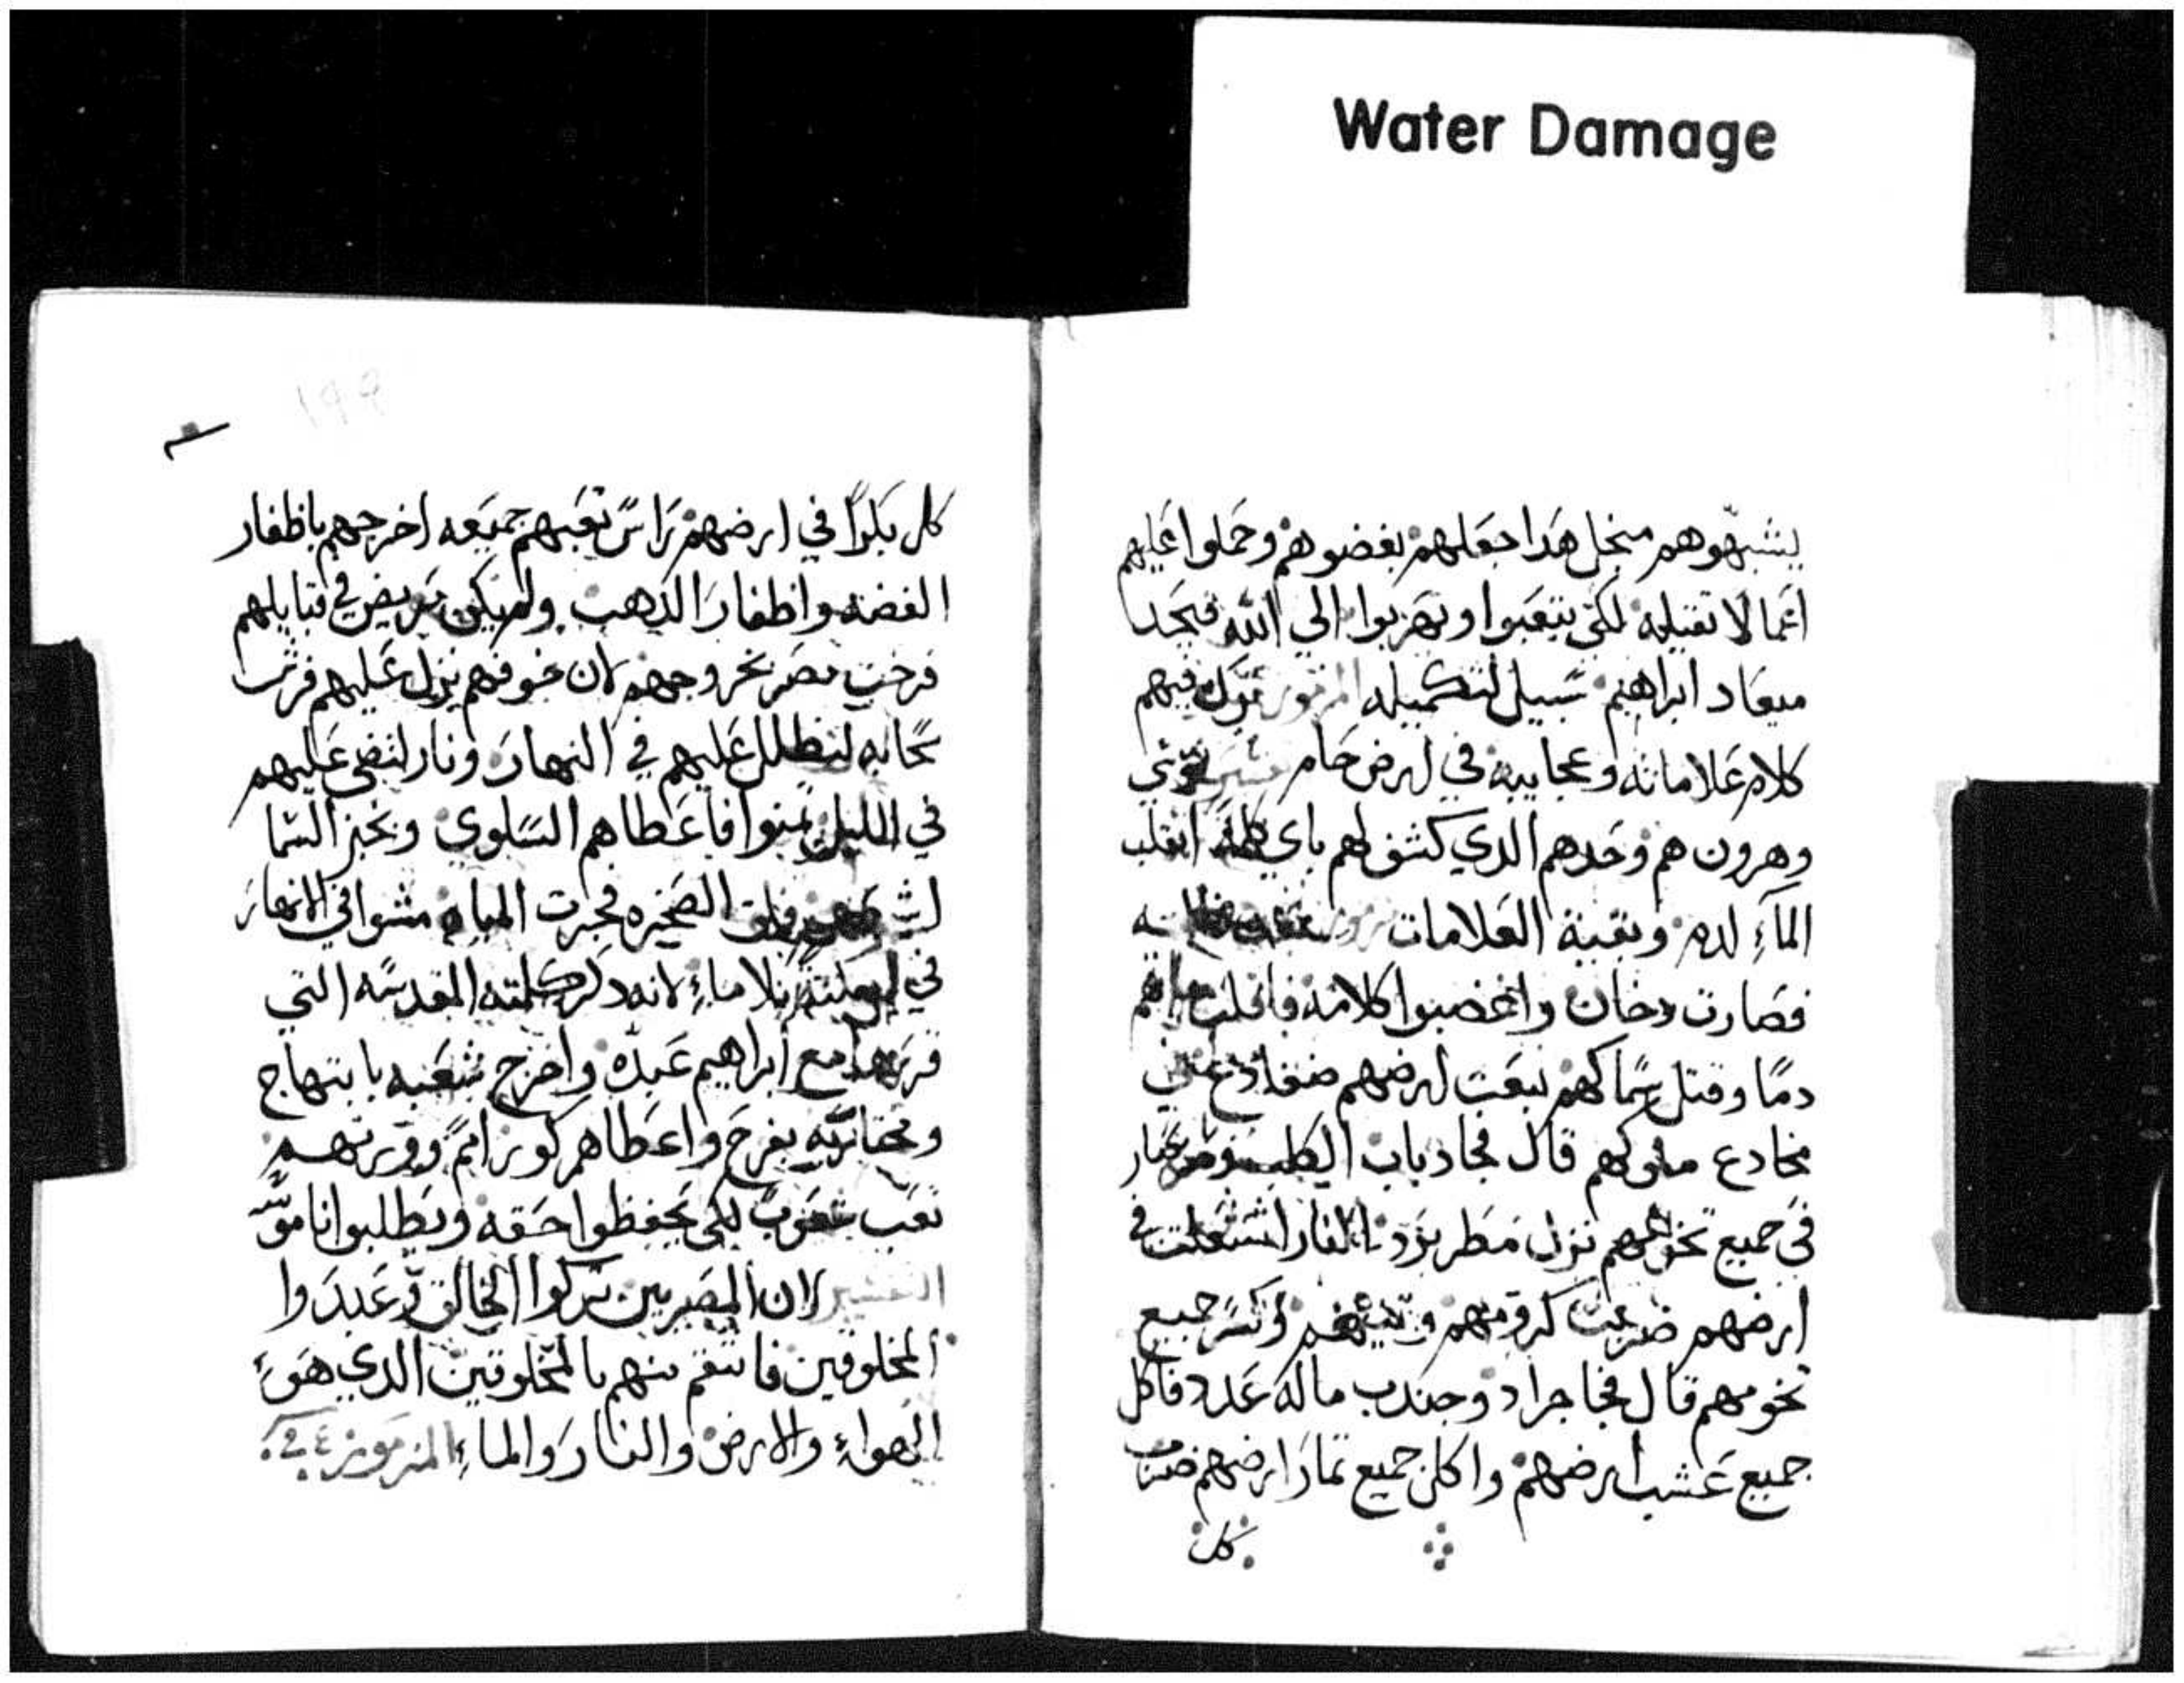 Water Damage
يشبهوهم منجل هدا جعلهم بغضوهم وحملوا عليهم
اعمالا تقيله لكي يتعبوا ويهربوا الي الله فيجد
ميعاد ابراهيم سبيل لتكميله المزمور ترك فيهم
كلام علاماته وعجايبه في ارض حام تفسير موسي
وهرون هم وحدهم الدي كشف لهم باي كلمة انقلب
الماء لدم وبقية العلامات
فصارت دخان واغضبوا كلامه فاقلب مياههم
دمًا وقتل سماكهم نبعت ارضهم ضفادع في
مخادع ملوكهم قال فجا دباب الكلب
في جميع تخومهم نزل مطر برد النار اشتعلت في
ارضهم ضربت كرومهم وتينهم وكسر جميع
تخومهم قال فجا جراد وجندب ماله عدد فاكل
جميع عشب ارضهم واكل جميع تمار ارضهم ضرب
كل
١٩٩
كل بكرًا في ارضهم راس تعبهم جميعه اخرجهم باظفار
الفضه واظفار الدهب ولم يكن مريض في قبايلهم
فرحت مصر بخروجهم لان خوفهم نزل عليهم فرش
سحابه لتظلل عليهم في النهار ونار لتضي عليهم
في الليل تمنوا فاعطاهم السلوي وبخبز السما
فلق الصخره فجرت المياه مشوا في الانهار
في بلا ماء لانه دكر كلمته المقدسه التي
قررها مع ابراهيم عبده واخرج شعبه بابتهاج
ومختاريه بفرح واعطاهم كور امم وورتهم
تعب شعوب لكي يحفظوا حقه ويطلبوا ناموسه
التفسير لان المصريين تركوا الخالق وعبدوا
المخلوقين فانتقم منهم بالمخلوقين الدي هو
الهواء والارض والنار والماء المزمور